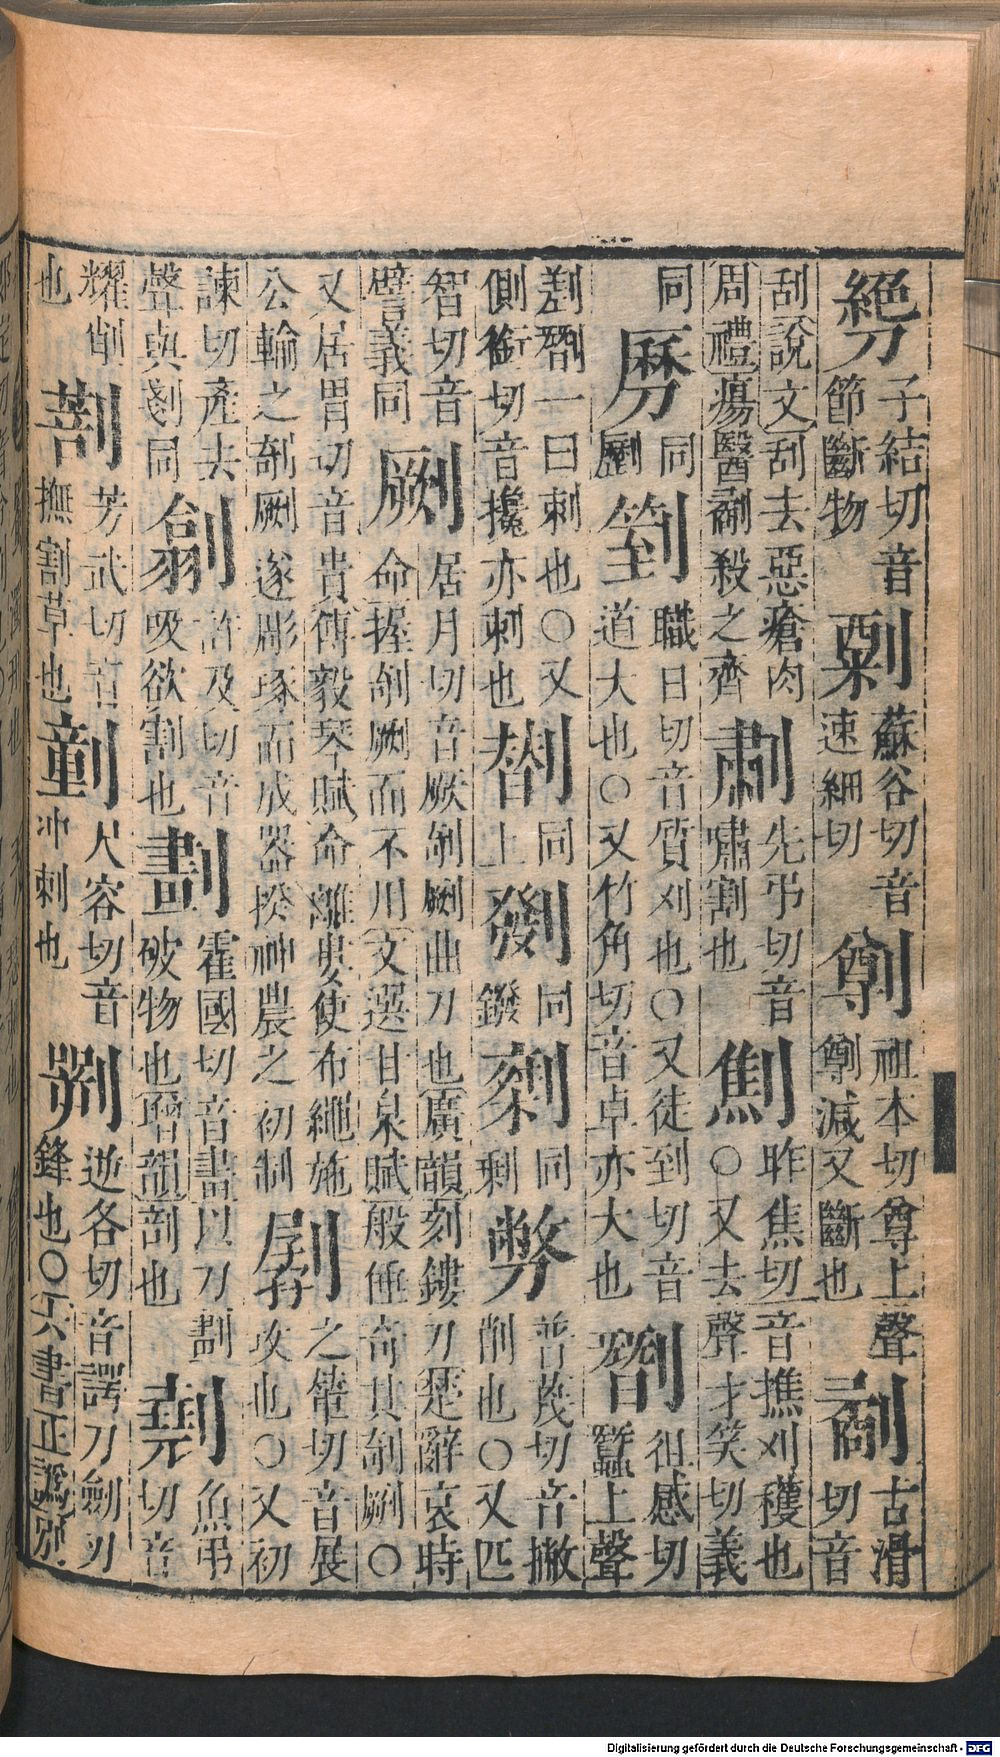 子結切音節斷物　蘇谷切音速細切　祖本切尊上聲減又斷也劀古滑切音
刮說文刮去惡瘡肉周禮瘍醫劀殺之齊　先弔切音嘯割也劁昨焦切音撨刈穫也○又去聲才笑切義
同　同　箌職日切音質刈也○又徒到切音道大也○又竹角切音卓亦大也　徂感切蠶上聲
一曰刺也○又側銜切音攙亦刺也　同上　同鏺　同剩　普蔑切音撇削也○又匹
智切音譬義同劂居月切音厥剞劂曲刀也廣韻刻鏤刀楚辭哀時命握剞劂而不用文選甘泉賦般倕奇其剞劂○
又居胃切音貴傅毅琴賦命離婁使布繩施公輸之剞劂遂彫琢而成器揆神農之初制　切音展攻也○又初
諫切產去聲與剗同　許及切音吸欲割也劃霍國切音畫以刀劃破物也增韻剖也　魚弔切音
耀削也　芳武切音撫割草也　尺容切音冲刺也　逆各切音諤刀劍刃鋒也○六書正譌別
Digitalisierung gefördert durch die Deutsche Forschungsgemeinschaft - DFG